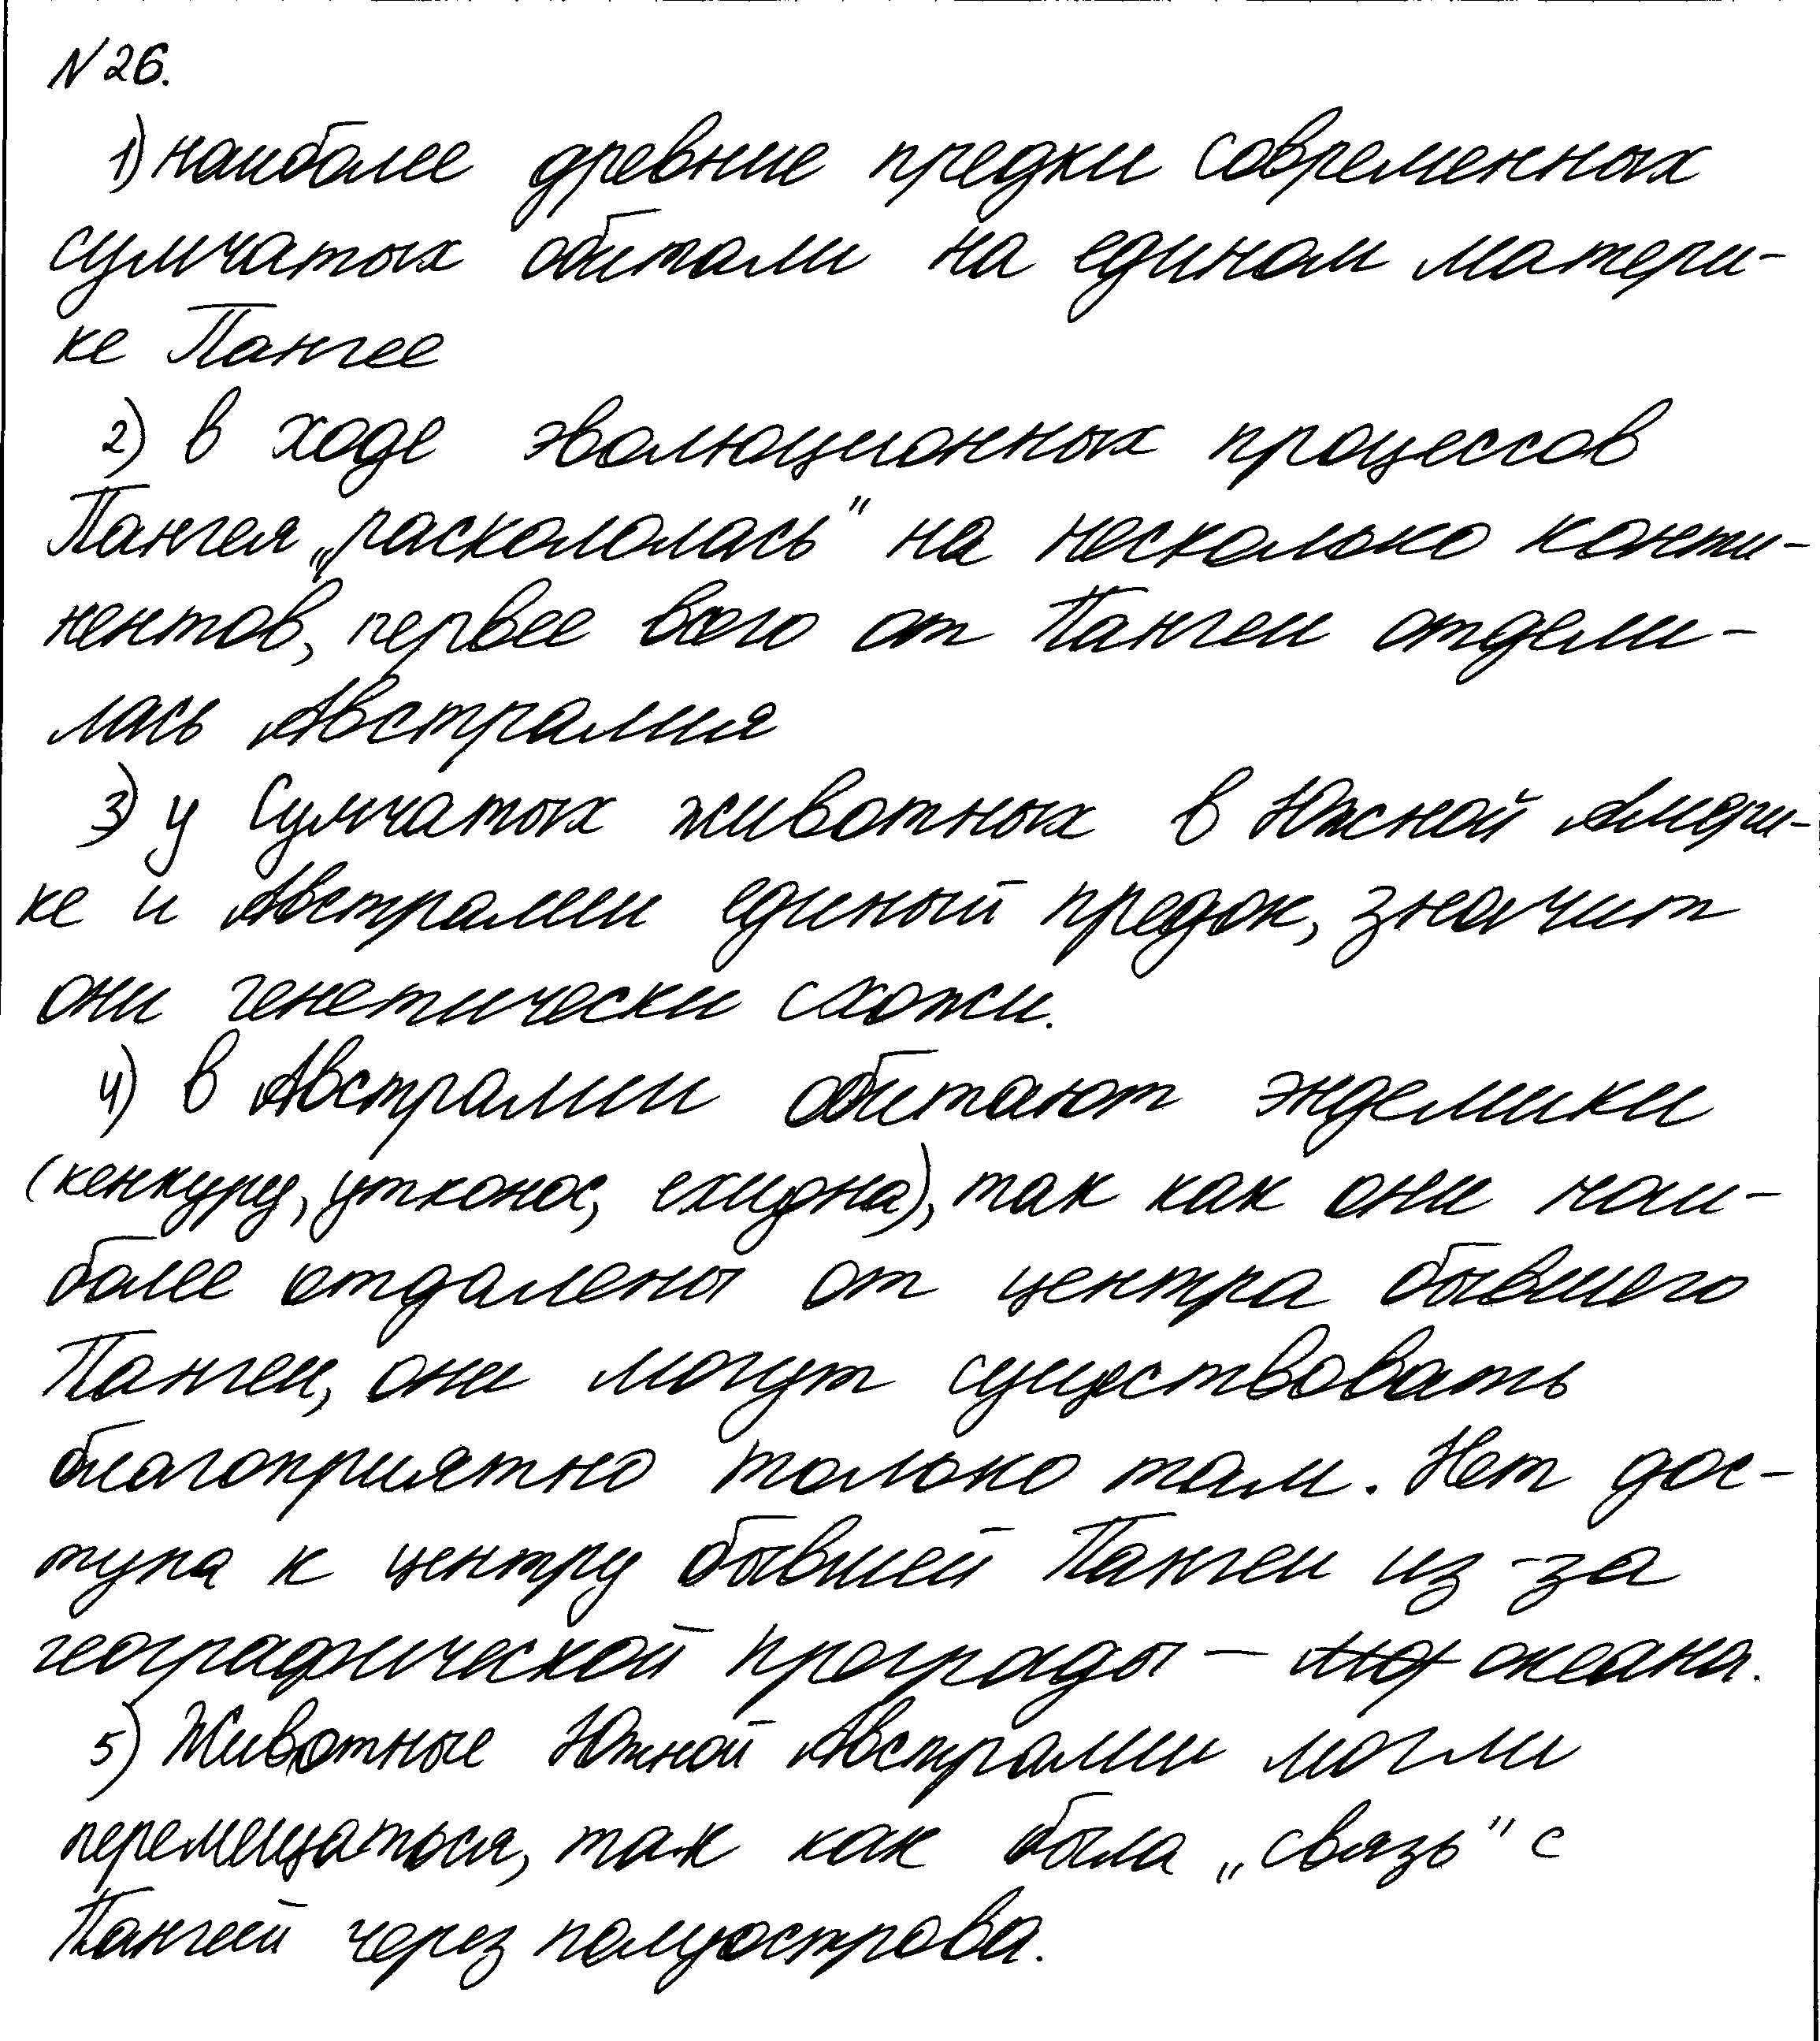 №26.
1) наиболее древние предки современных
сумчатых обитали на едином матери-
ке Пангее
2) в ходе эволюционных процессов
Пангея „раскололась" на несколько конти-
нентов, первее всего от Пангеи отдели-
лась Австралия
3) у сумчатых животных в Южной Амери-
ке и Австралии единый предок, значит
они генетически схожи.
4) в Австралии обитают эндемики
(кенкуру, утконос, ехидна), так как они наи-
более отдалены от центра бывшего
Пангеи, они могут существовать
благоприятно только там. Нет дос-
тупа к центру бывшей Пангеи из-за
географической преграды — океана.
5) Животные Южной Австралии могли
перемещаться, так как была „связь" с
Пангей через полуострова.